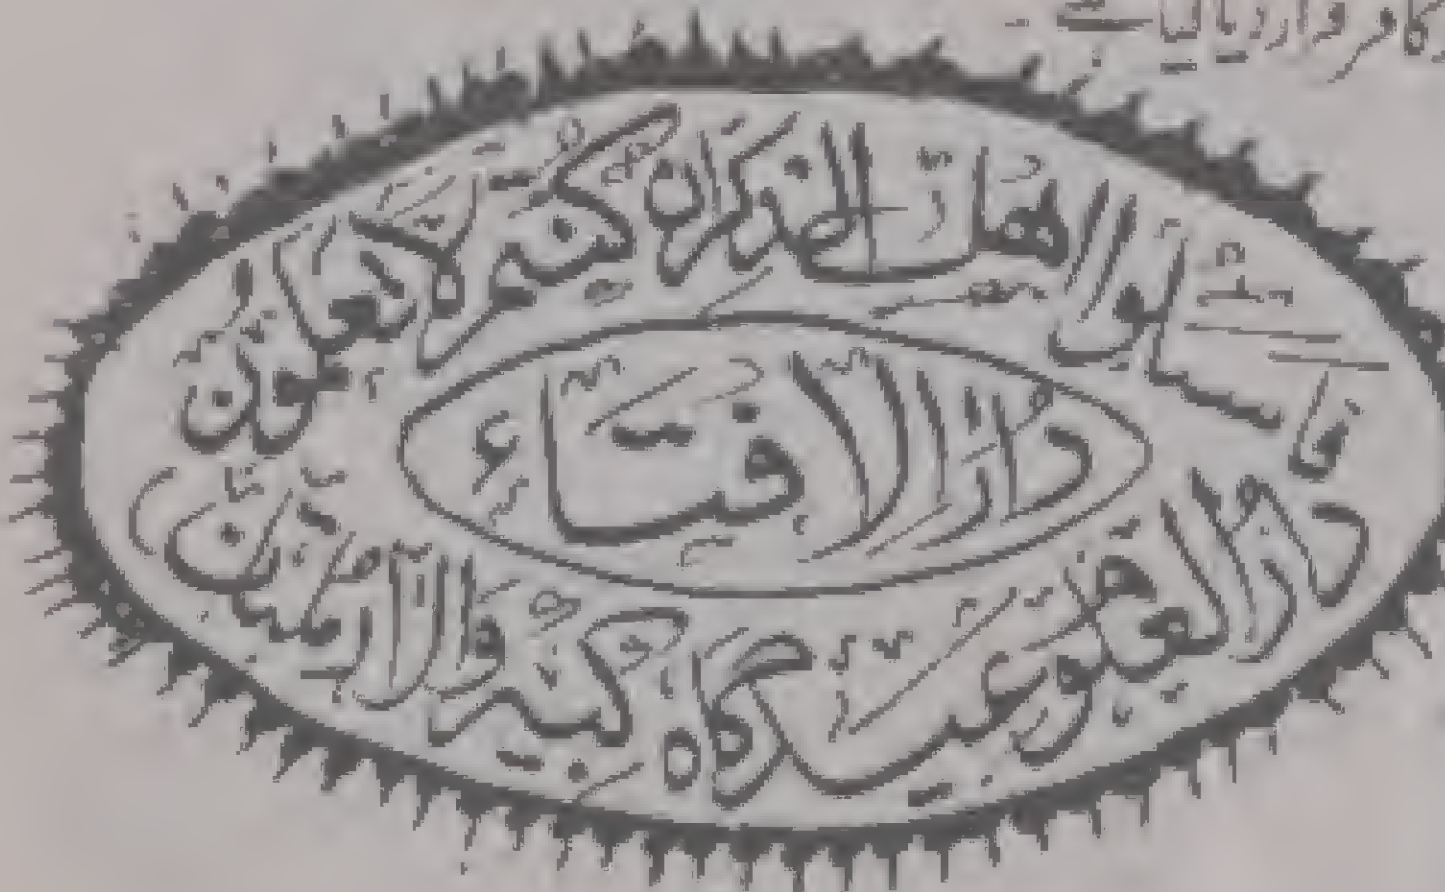 کافر قرار دیا گیا ہے۔
فاسئلوا اهل الذكر ان كنتم لا تعلمون
دار الافتاء
دار العلوم عیدگاہ کبیر والا